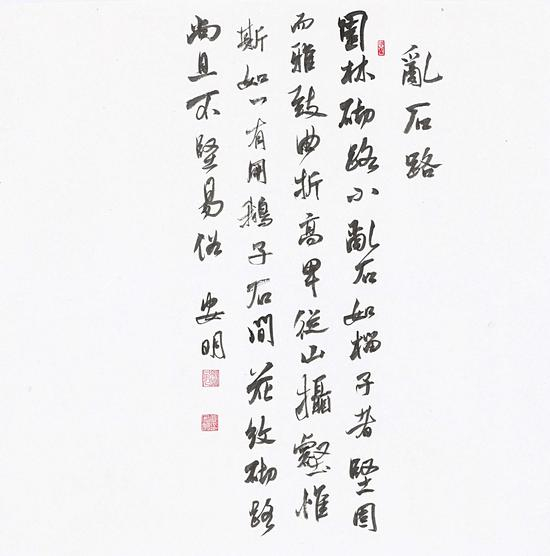 亂石路
園林砌路小亂石如榴子者堅固
而雅致曲折高卑從山攝壑惟
斯如一有用鵝子石間花紋砌路
尚且不堅易俗
安明